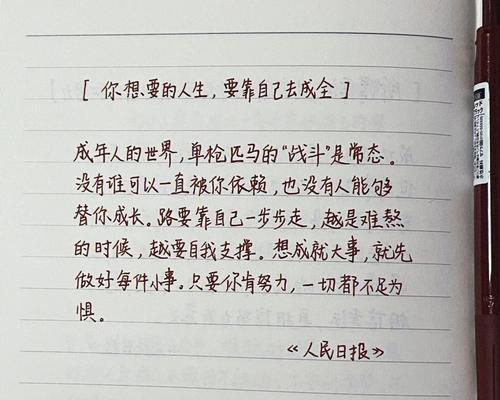 [ 你想要的人生，要靠自己去成全 ]
成年人的世界，单枪匹马的“战斗”是常态。
没有谁可以一直被你依赖，也没有人能够
替你成长。路要靠自己一步步走，越是难熬
的时候，越要自我支撑。想成就大事，就先
做好每件小事。只要你肯努力，一切都不足为
惧。
《人民日报》